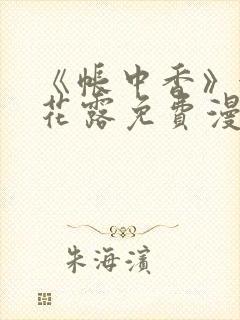 《帐中香》
花露免费漫
朱海滨